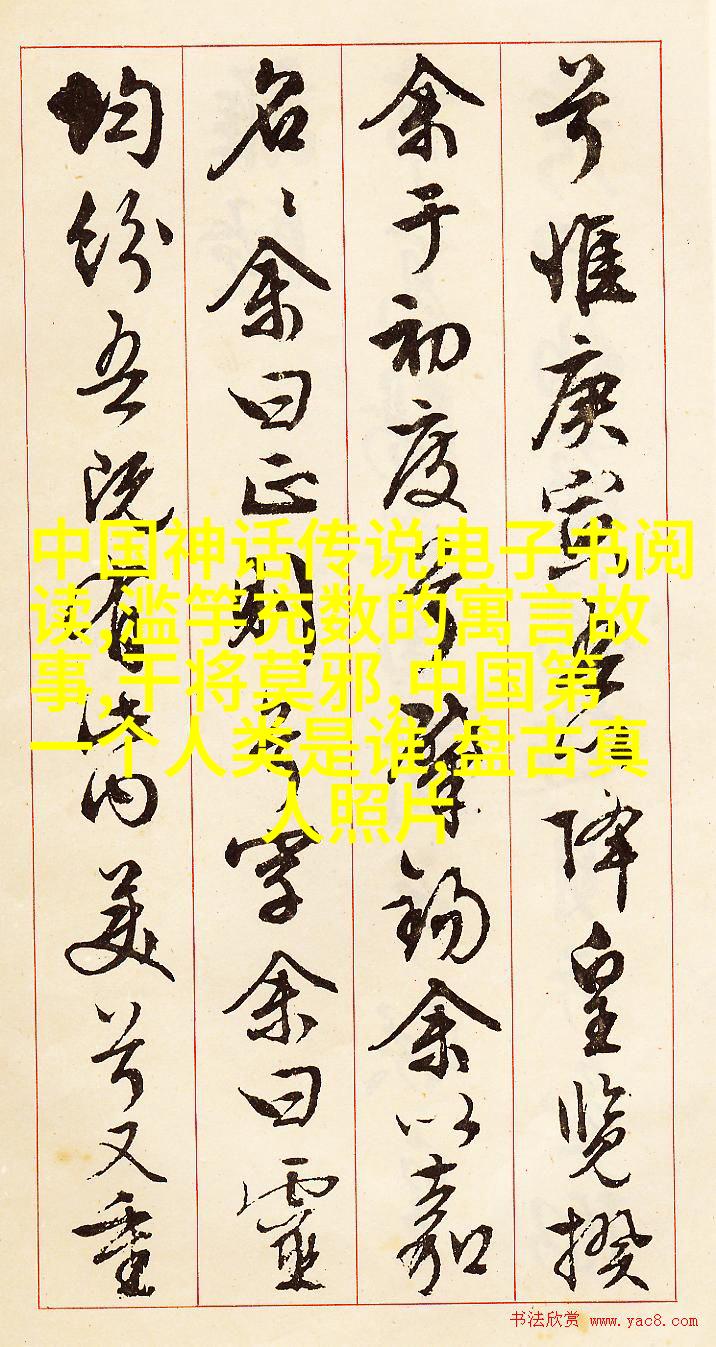 兮惟庚寅吾以降皇览揆
余于初度兮肇锡余以嘉
名〻余曰正则兮字余曰靈
均纷吾既有此内美兮又重
中国神话传说电子书阅
读,滥竽充数的寓言故
事,干将莫邪,中国第
一个人类是谁,盘古真
人照片
书法欣赏 www.yac8.com